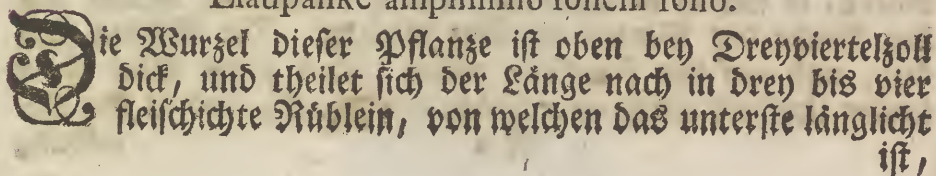 Llaupanke amplissimo sonchi folio.
Die Wurzel dieser Pflanze ist oben bey Dreyviertelzoll
dick, und theilet sich der Länge nach in drey bis vier
fleischichte Rüblein, von welchen das unterste länglicht
ist,